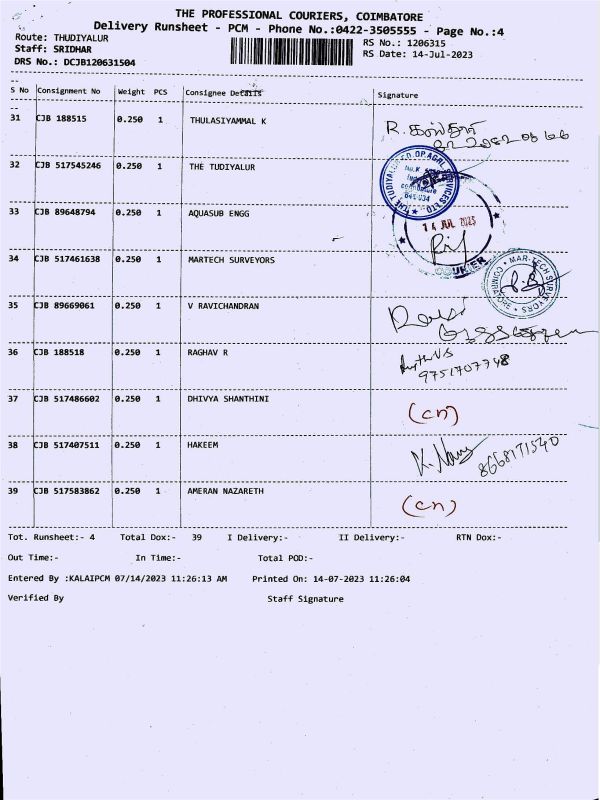 THE PROFESSIONAL COURIERS, COIMBATORE
Delivery Runsheet - PCM - Phone No.:0422-3505555 - Page No.:4
Route: THUDIYALUR
RS No.: 1206315
Staff: SRIDHAR
RS Date: 14-Jul-2023
DRS No.: DCJB120631504
S No Consignment No Weight PCS Consignee Details Signature
31 CJB 188515 0.250 1 THULASIYAMMAL K
32 CJB 517545246 0.250 1 THE TUDIYALUR
33 CJB 89648794 0.250 1 AQUASUB ENGG
14 JUL 2023
COURIER
34 CJB 517461638 0.250 1 MARTECH SURVEYORS
MAR-TECH SURVEYORS
35 CJB 89669061 0.250 1 V RAVICHANDRAN
36 CJB 188518 0.250 1 RAGHAV R
9751707748
37 CJB 517486602 0.250 1 DHIVYA SHANTHINI (cn)
38 CJB 517407511 0.250 1 HAKEEM
8668171540
39 CJB 517583862 0.250 1 AMERAN NAZARETH (cn)
Tot. Runsheet:- 4 Total Dox:- 39 I Delivery:- II Delivery:- RTN Dox:-
Out Time:- In Time:- Total POD:-
Entered By :KALAIPCM 07/14/2023 11:26:13 AM Printed On: 14-07-2023 11:26:04
Verified By Staff Signature